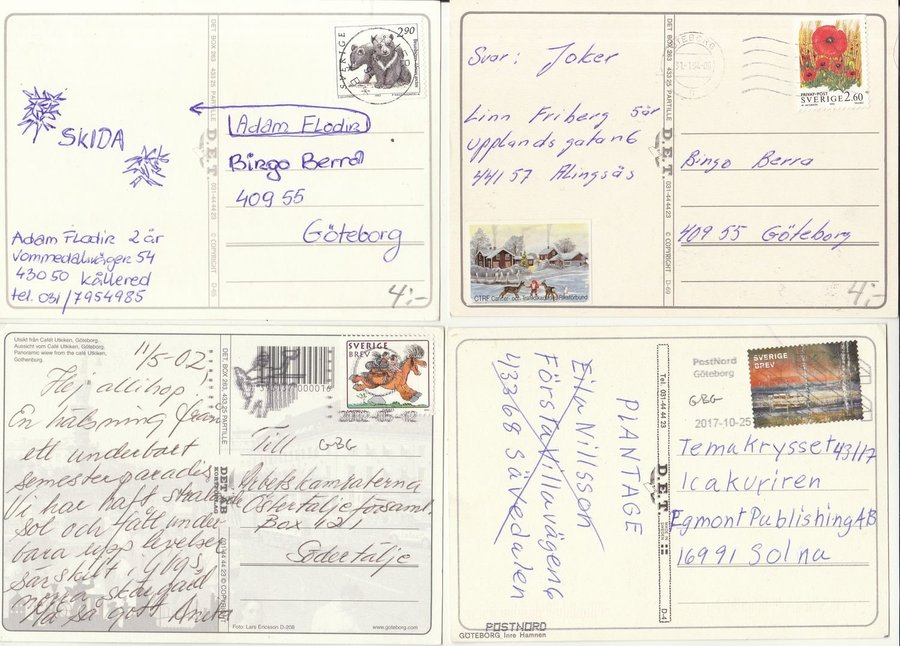 SVERIGE 2.90
DET BOX 263 433 25 PARTILLE
D.E.T.
031-44 44 23
© COPYRIGHT
D-65
SKIDA
Adam Flodin
Bingo Berra
409 55
Göteborg
Adam Flodin 2 år
Vommedalsvägen 54
430 50 Kållered
tel. 031/7954985
4:-
Svar: Joker
Linn Friberg 5 år
Upplandsgatan 6
441 57 Alingsås
CTRF Cancer- och Trafikskadades Riksförbund
DET BOX 263 433 25 PARTILLE
D.E.T.
031-44 44 23
© COPYRIGHT
D-69
GÖTEBORG
PRIVAT-POST
SVERIGE 2.60
Bingo Berra
409 55 Göteborg
4:-
Utsikt från Café Utkiken, Göteborg.
Aussicht vom Café Utkiken, Göteborg.
Panoramic wiew from the café Utkiken,
Gothenburg
11/5-02
Hej allihop
En hälsning från
ett underbart
semesterparadis
Vi har haft strålande
sol och fått under
bara upplevelser
särskilt i Gbgs
norra skärgård
Ha så gott Anita
DET BOX 263 433 25 PARTILLE
DET AB
© COPYRIGHT
SVERIGE
BREV
Till GBG
Arbetskamraterna
Östertälje församl.
Box 421
Södertälje
Foto: Lars Ericsson D-208
www.goteborg.com
PLANTAGE
Förstakullavägen 6
433 68 Sävedalen
Tel. 031-44 44 23
D.E.T.
D-4
PostNord
Göteborg
GBG
2017-10-25
SVERIGE
BREV
Temakrysset 43/17
Icakuriren
Egmont Publishing AB
169 91 Solna
POSTNORD
GÖTEBORG Inre Hamnen